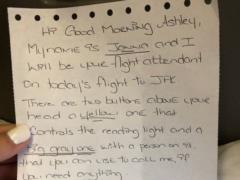 Hi Good Morning Ashley,
My name is Janna and I
will be your flight attendant
on today's flight to JFK
There are two buttons above your
head a yellow one that
Controls the reading light and a
big gray one with a person on it,
that you can use to call me, if
you need anything